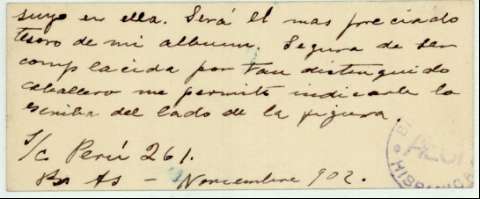 suyo en ella. Será el mas preciado
tesoro de mi album. Segura de ser
complacida por tan distinguido
caballero me permito indicarle lo
escriba del lado de la figura.
S/c Perú 261.
Bs As - Noviembre 902.
HISPANIC